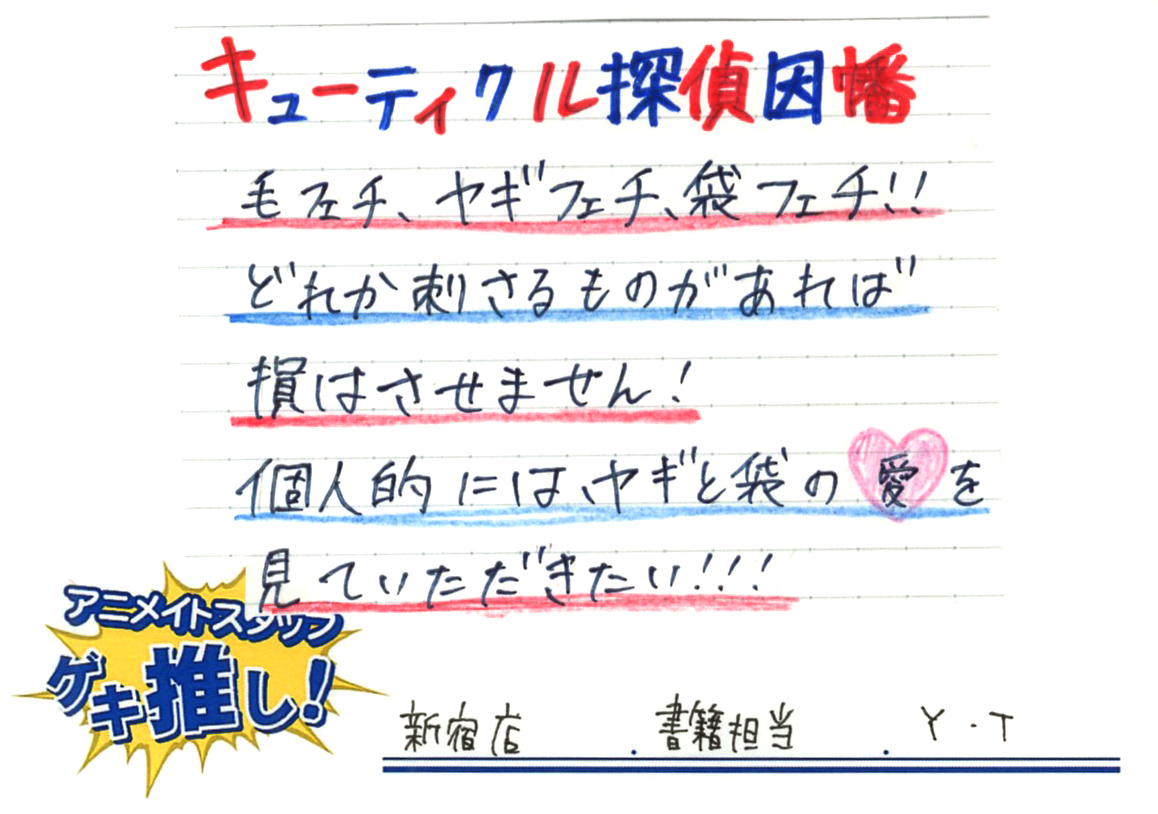 キューティクル探偵因幡
毛フェチ、ヤギフェチ、袋フェチ!!
どれか刺さるものがあれば
損はさせません!
個人的には、ヤギと袋の愛を
見ていただきたい!!!
アニメイトスタッフ
ゲキ推し!
新宿店 . 書籍担当 . Y・T